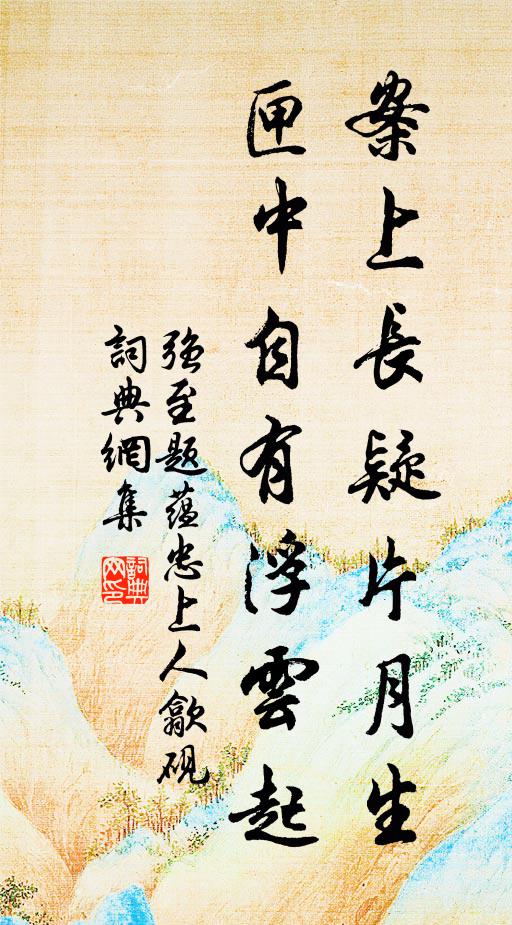 案上長疑片月生
匣中自有浮雲起
強至題蘊忠上人歙硯
詞典網集
詞典
网印